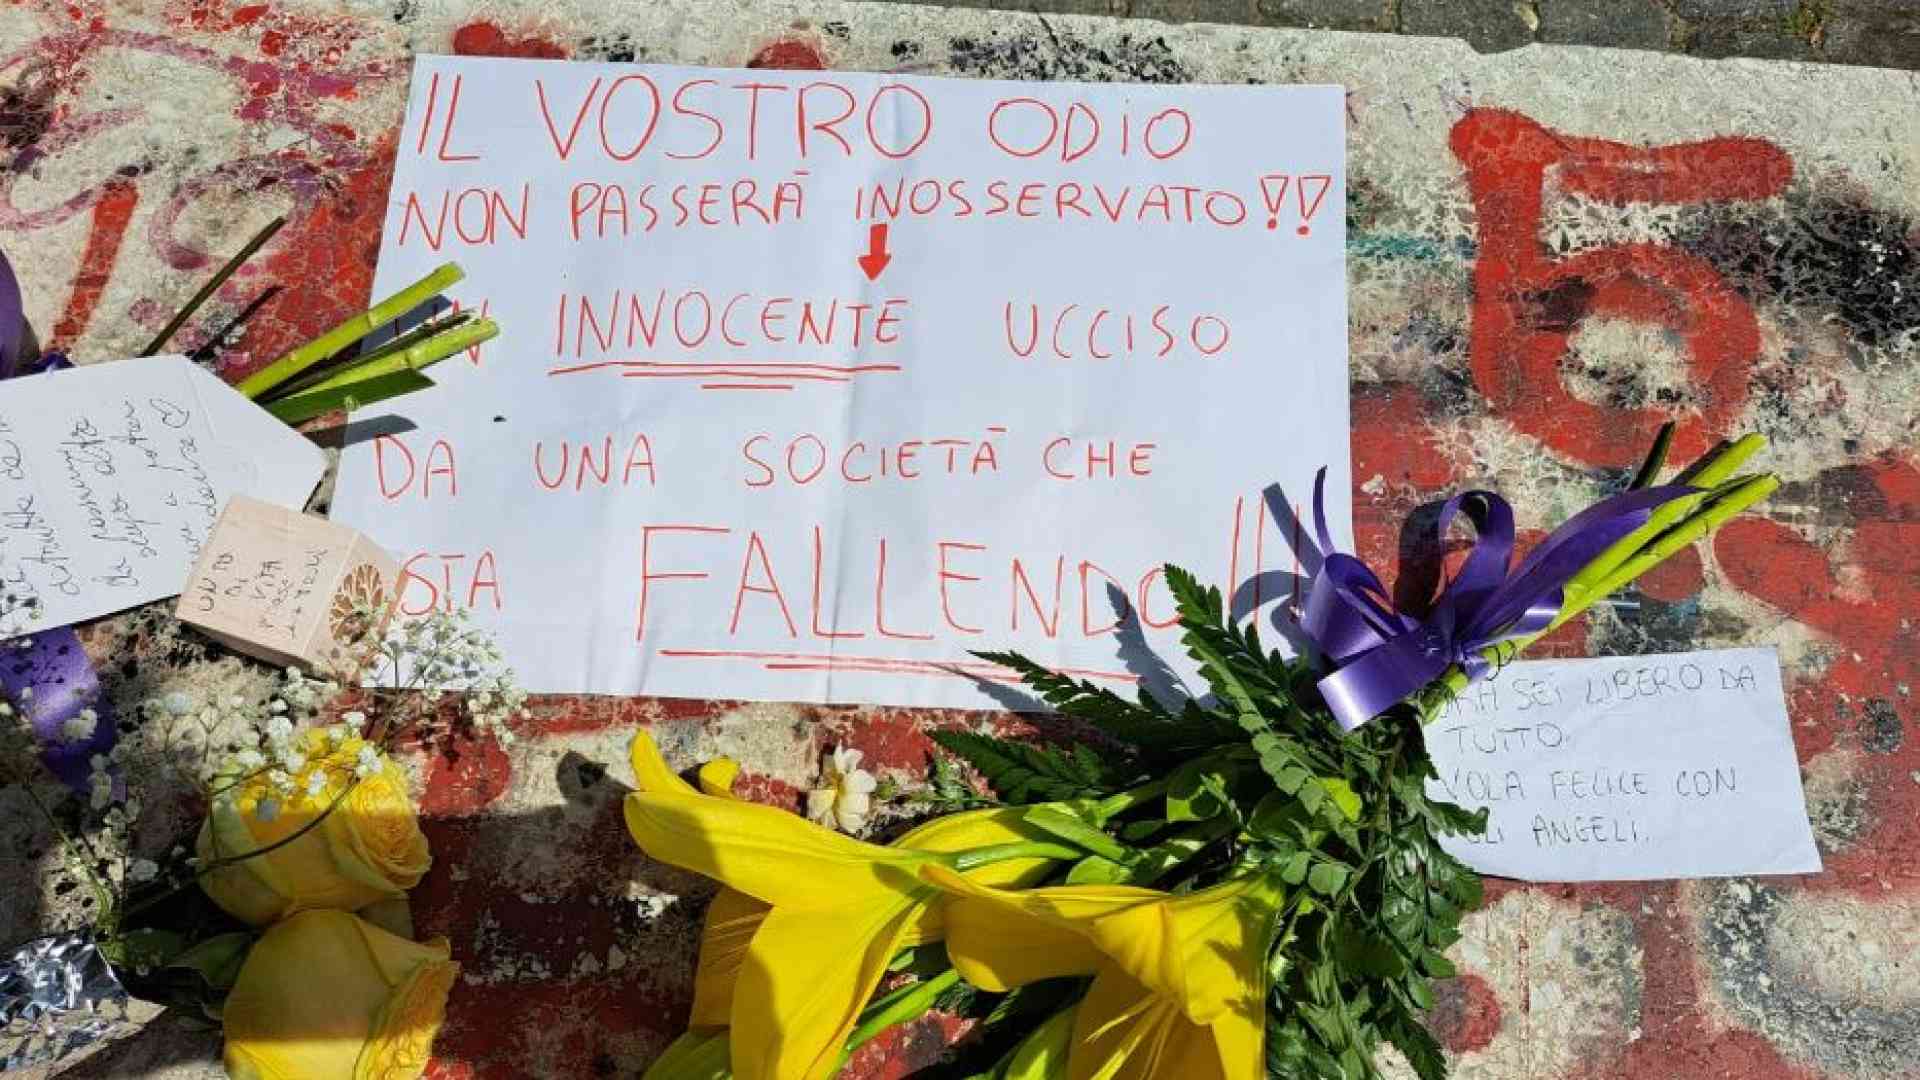 IL VOSTRO ODIO
NON PASSERÀ INOSSERVATO!!
UN INNOCENTE UCCISO
DA UNA SOCIETÀ CHE
STA FALLENDO!!!
SEI LIBERO DA
TUTTO.
VOLA FELICE CON
GLI ANGELI.
DI
VITA